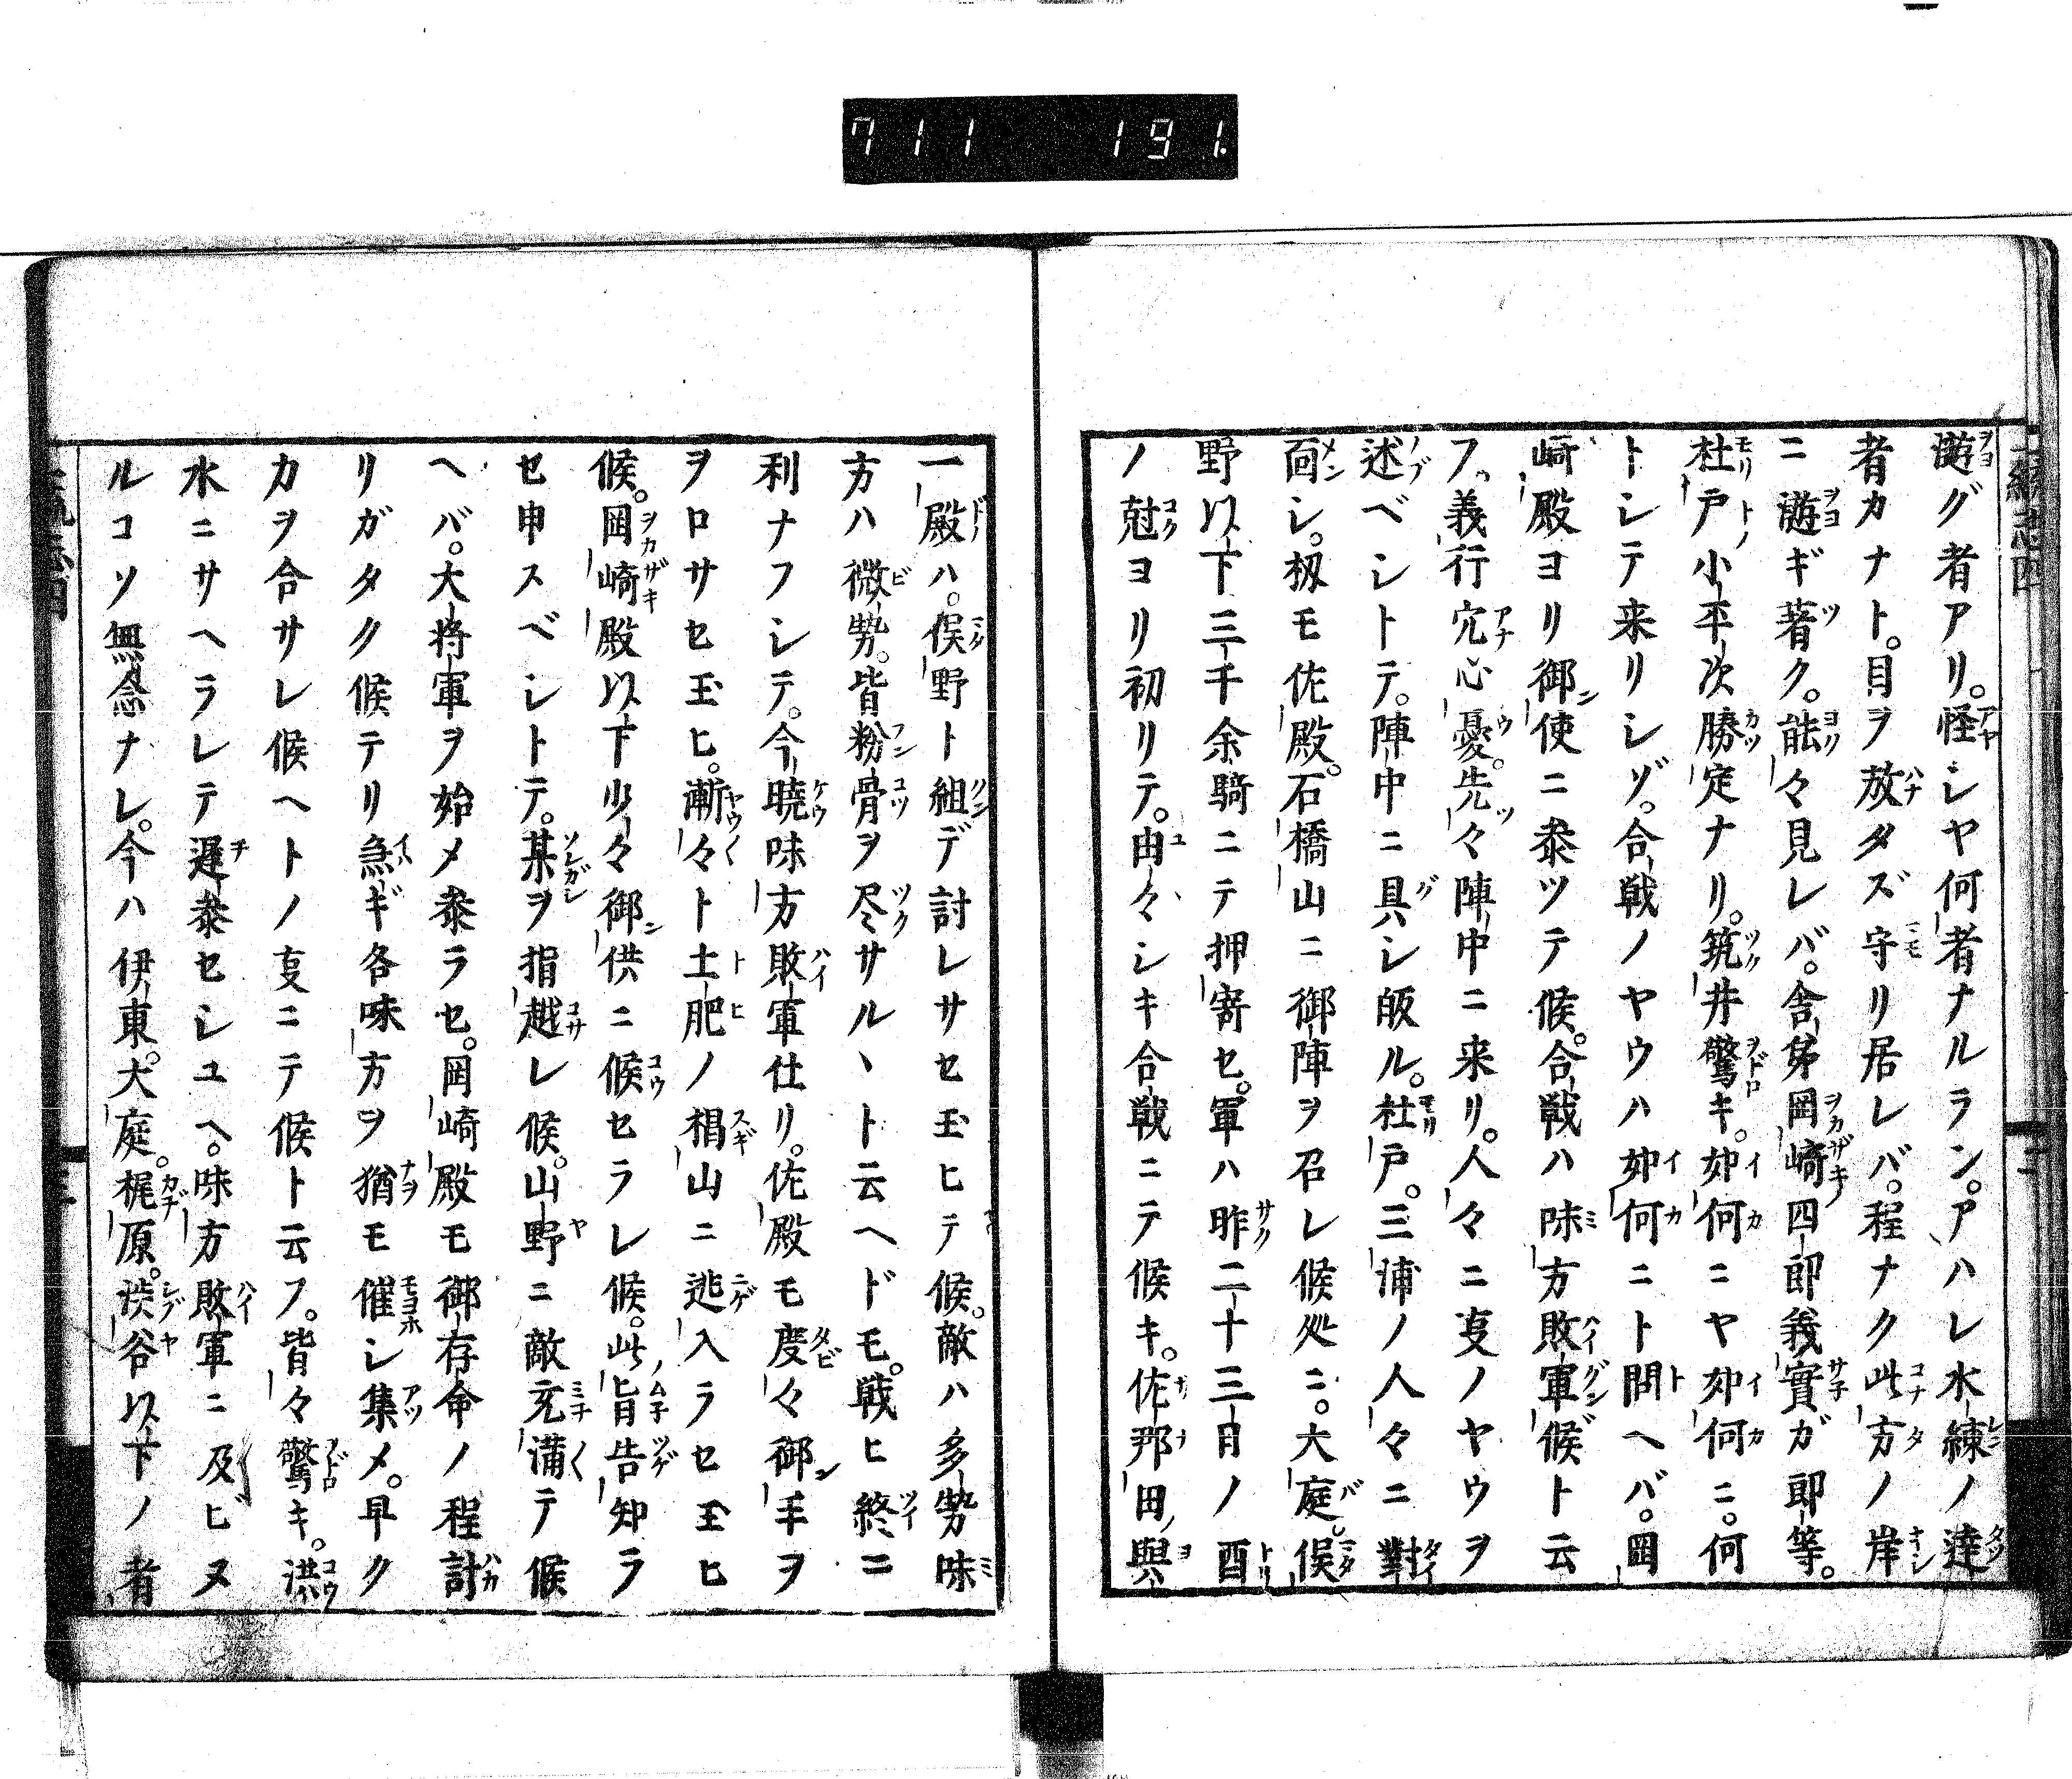 711 191.
游グ者アリ。怪シヤ何者ナルラン。アハレ水練ノ達
者カナト。目ヲ放タズ守リ居レバ。程ナク此方ノ岸
ニ游ギ著ク。能々見レバ。舎弟岡崎四郎義實ガ郎等。
杜戸小平次勝定ナリ。筑井驚キ。如何ニヤ如何ニ。何
トシテ来リシゾ。合戦ノヤウハ如何ニト問ヘバ。岡
崎殿ヨリ御使ニ参ツテ候。合戦ハ味方敗軍候ト云
フ。義行穴心憂。先々陣中ニ来リ。人々ニ叓ノヤウヲ
述ベシトテ。陣中ニ具シ皈ル。杜戸。三浦ノ人々ニ對
面シ。扨モ佐殿。石橋山ニ御陣ヲ召レ候処ニ。大庭。俣
野以下三千余騎ニテ押寄セ。軍ハ昨二十三日ノ酉
ノ尅ヨリ初リテ。由々シキ合戦ニテ候キ。佐那田與
一殿ハ。俣野ト組デ討レサセ玉ヒテ候。敵ハ多勢味
方ハ微勢。皆粉骨ヲ尽サルヽト云ヘドモ。戦ヒ終ニ
利ナフシテ。今暁味方敗軍仕リ。佐殿モ度々御手ヲ
ヲロサセ玉ヒ。漸々ト土肥ノ椙山ニ逃入ラセ玉ヒ
候。岡崎殿以下少々御供ニ候セラレ候。此旨告知ラ
セ申スベシトテ。某ヲ指越レ候。山野ニ敵充満テ候
ヘバ。大将軍ヲ始メ参ラセ。岡崎殿モ御存命ノ程計
リガタク候テリ急ギ各味方ヲ猶モ催シ集メ。早ク
力ヲ合サレ候ヘトノ叓ニテ候ト云フ。皆々驚キ。洪
水ニサヘラレテ遅参セシユヘ。味方敗軍ニ及ビヌ
ルコソ無念ナレ。今ハ伊東。大庭。梶原。渋谷以下ノ者